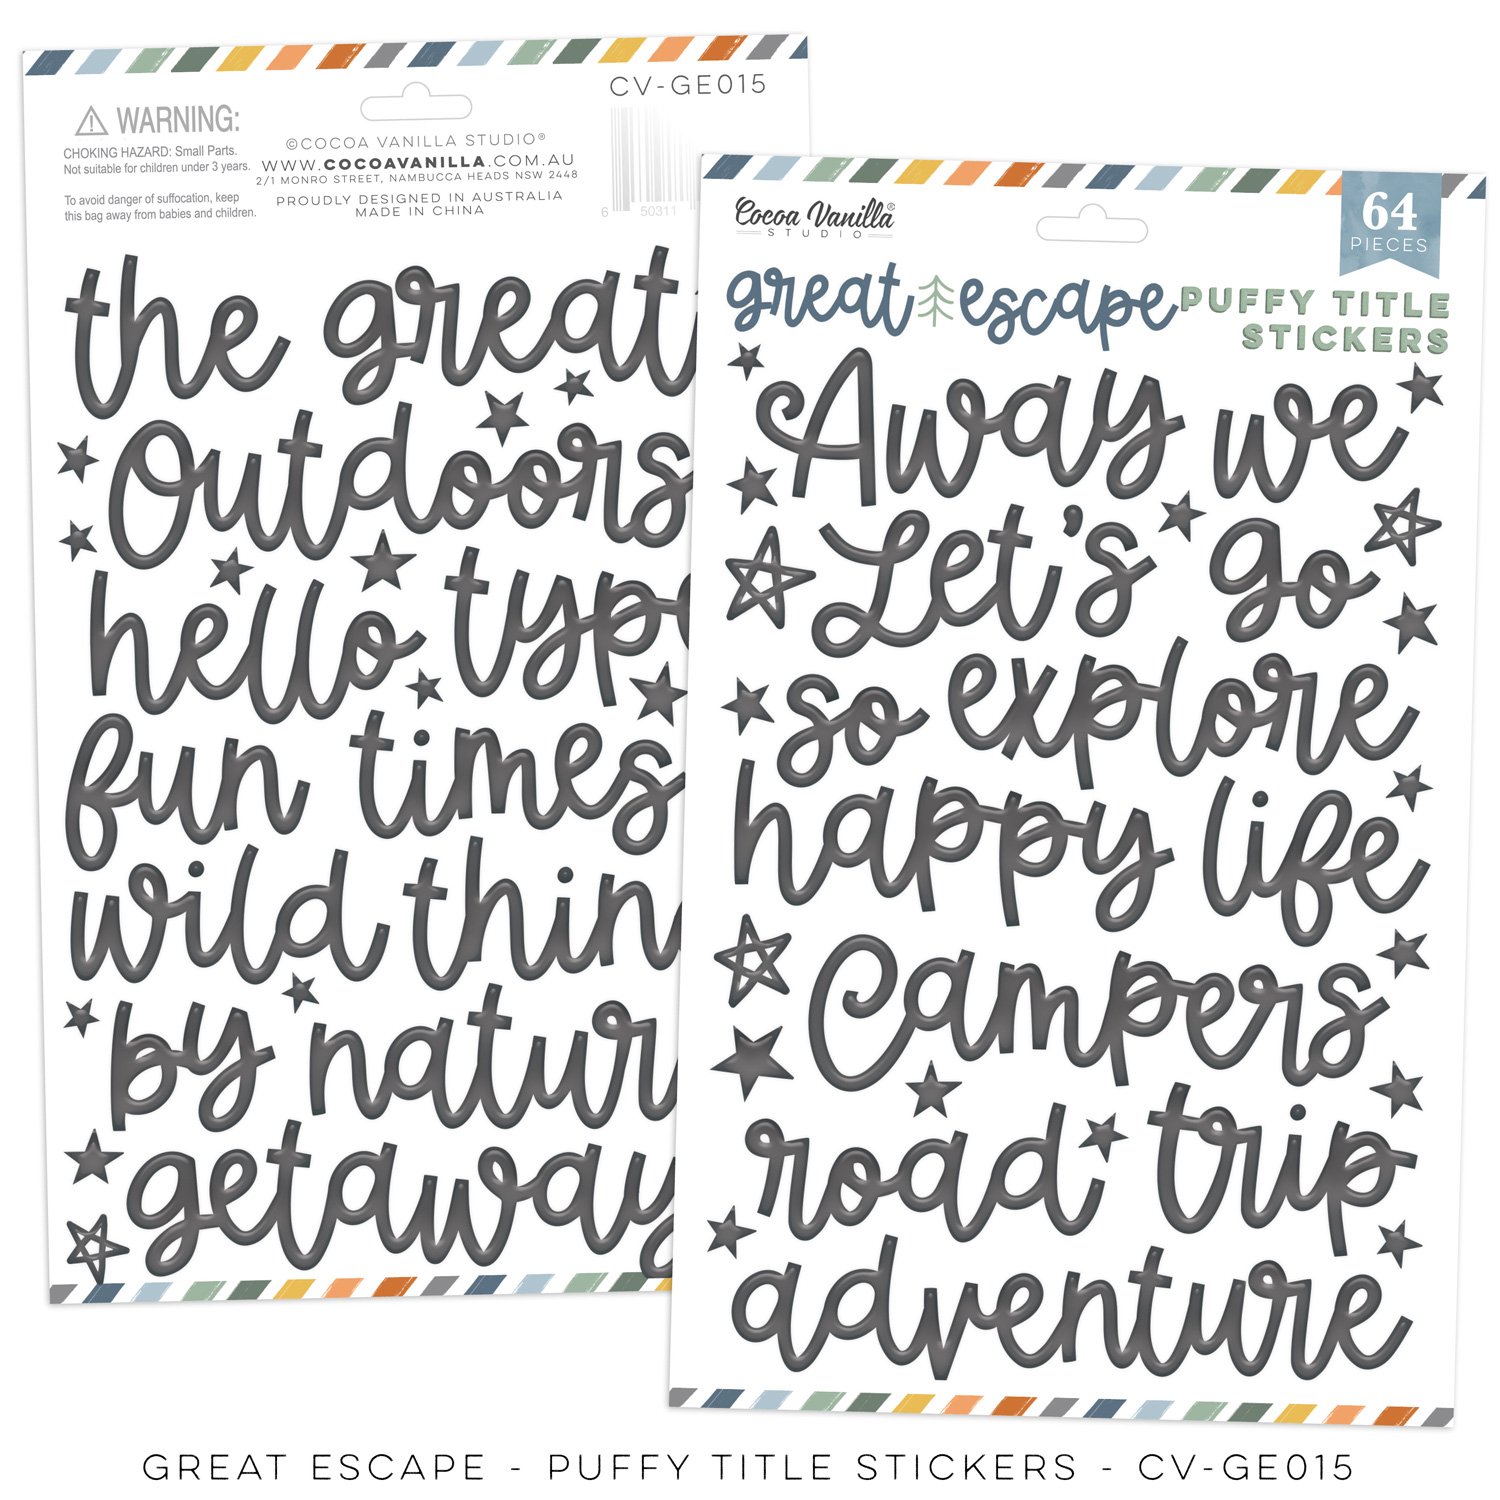 CV-GE015
WARNING:
CHOKING HAZARD: Small Parts.
Not suitable for children under 3 years.
To avoid danger of suffocation, keep
this bag away from babies and children.
©COCOA VANILLA STUDIO®
WWW.COCOAVANILLA.COM.AU
2/1 MONRO STREET, NAMBUCCA HEADS NSW 2448
PROUDLY DESIGNED IN AUSTRALIA
MADE IN CHINA
6 50311
the great
Outdoors
hello
fun times
wild
by
getaway
Cocoa Vanilla®
STUDIO
64
PIECES
great escape
PUFFY TITLE
STICKERS
Away we
Let's go
so explore
happy life
Campers
road trip
adventure
GREAT ESCAPE - PUFFY TITLE STICKERS - CV-GE015